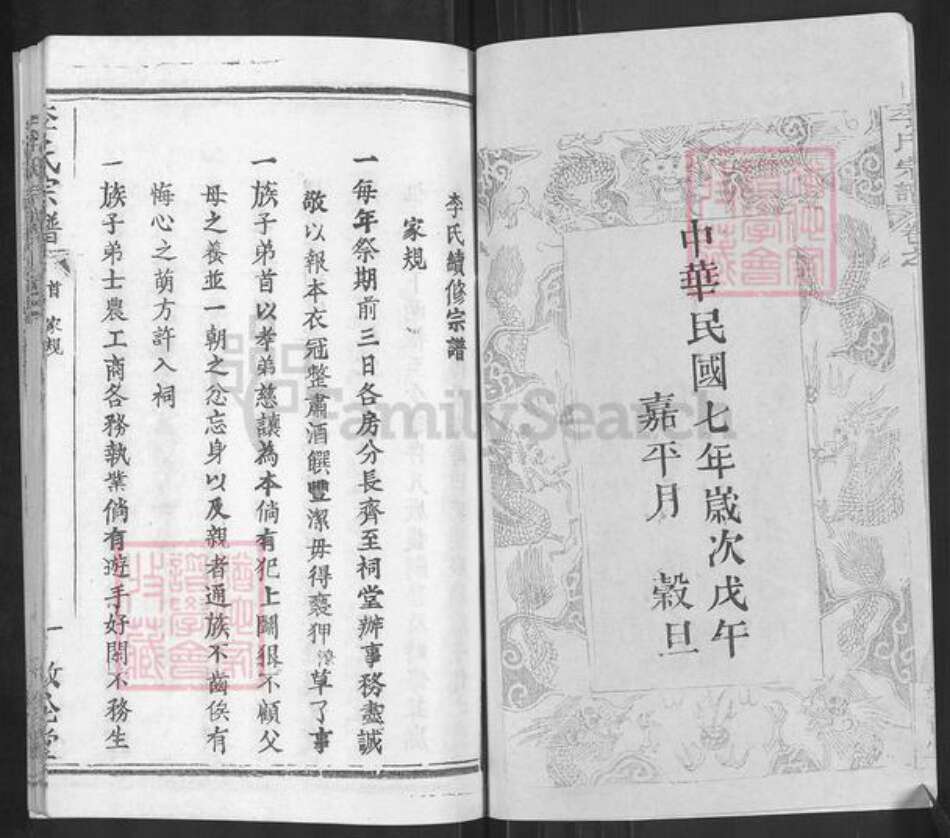 中華民國七年歲次戊午
嘉平月 穀旦
李氏宗譜
李氏續修宗譜
家規
一每年祭期前三日各房分長齊至祠堂辦事務盡誠
敬以報本衣冠整肅酒饌豐潔毋得褻狎潦草了事
一族子弟首以孝弟慈讓為本倘有犯上鬪狠不顧父
母之養並一朝之忿忘身以及親者通族不齒俟有
悔心之萌方許入祠
一族子弟士農工商各務執業倘有遊手好閒不務生
李氏宗譜
首 家規
一
FamilySearch